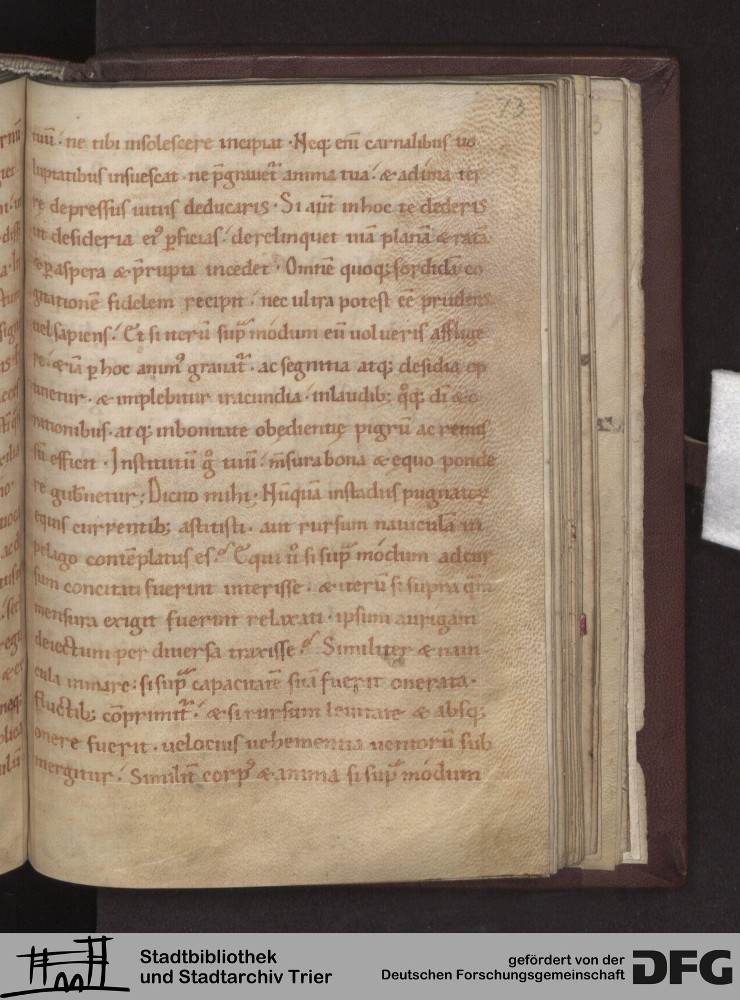 73
tuū. ne tibi insolescere incipiat. Neq; enī carnalibus uo
luptatibus insuescat. ne p̄grauet᷑ anima tua. & ad ima ter
re depressus uitiis deducaris. Si aūt in hoc te dederis
ut desideria eiꝰ ꝑficias. derelinquet uiā planā & ratā
& ꝑ aspera & p̄rupta incedet. Omnē quoq; sordidā co
gitationē fidelem recipit. nec ultra potest eē prudens
uel sapiens. Et si iterū supͣ modum eū uolueris afflige
re. & iā ꝑ hoc animꝰ grauat᷑. ac segnitia atq; desidia op
timetur. & implebitur iracundia. in laudib; qͦq; dī & o
rationibus. atq; in bonitate obedientie pigrū ac remis
sū efficit. Institutū gͦ tuū. m̄sura bona & equo ponde
re gub̄netur; Dicito mihi. Nūquā in stadiis pugnator
equis currentib; astitisti. aut rursum nauiculā in
pelago contēplatus es? Equi ū si supͣ modum ad cur
sum concitati fuerint interisse. & iterū si supra qͣm
mensura exigit fuerint relaxati. ipsum aurigam
deiectum per diuersa traxisse? Similiter & naui
cula in mare. si supͣ capacitatē suā fuerit onerata.
fluctib; cōprimit᷑. & si rursum leuitate & absq;
onere fuerit. uelocius uehementia uentorū sub
mergitur. Similit̄ corpꝰ & anima si supͣ modum
Stadtbibliothek
und Stadtarchiv Trier
gefördert von der
Deutschen Forschungsgemeinschaft
DFG